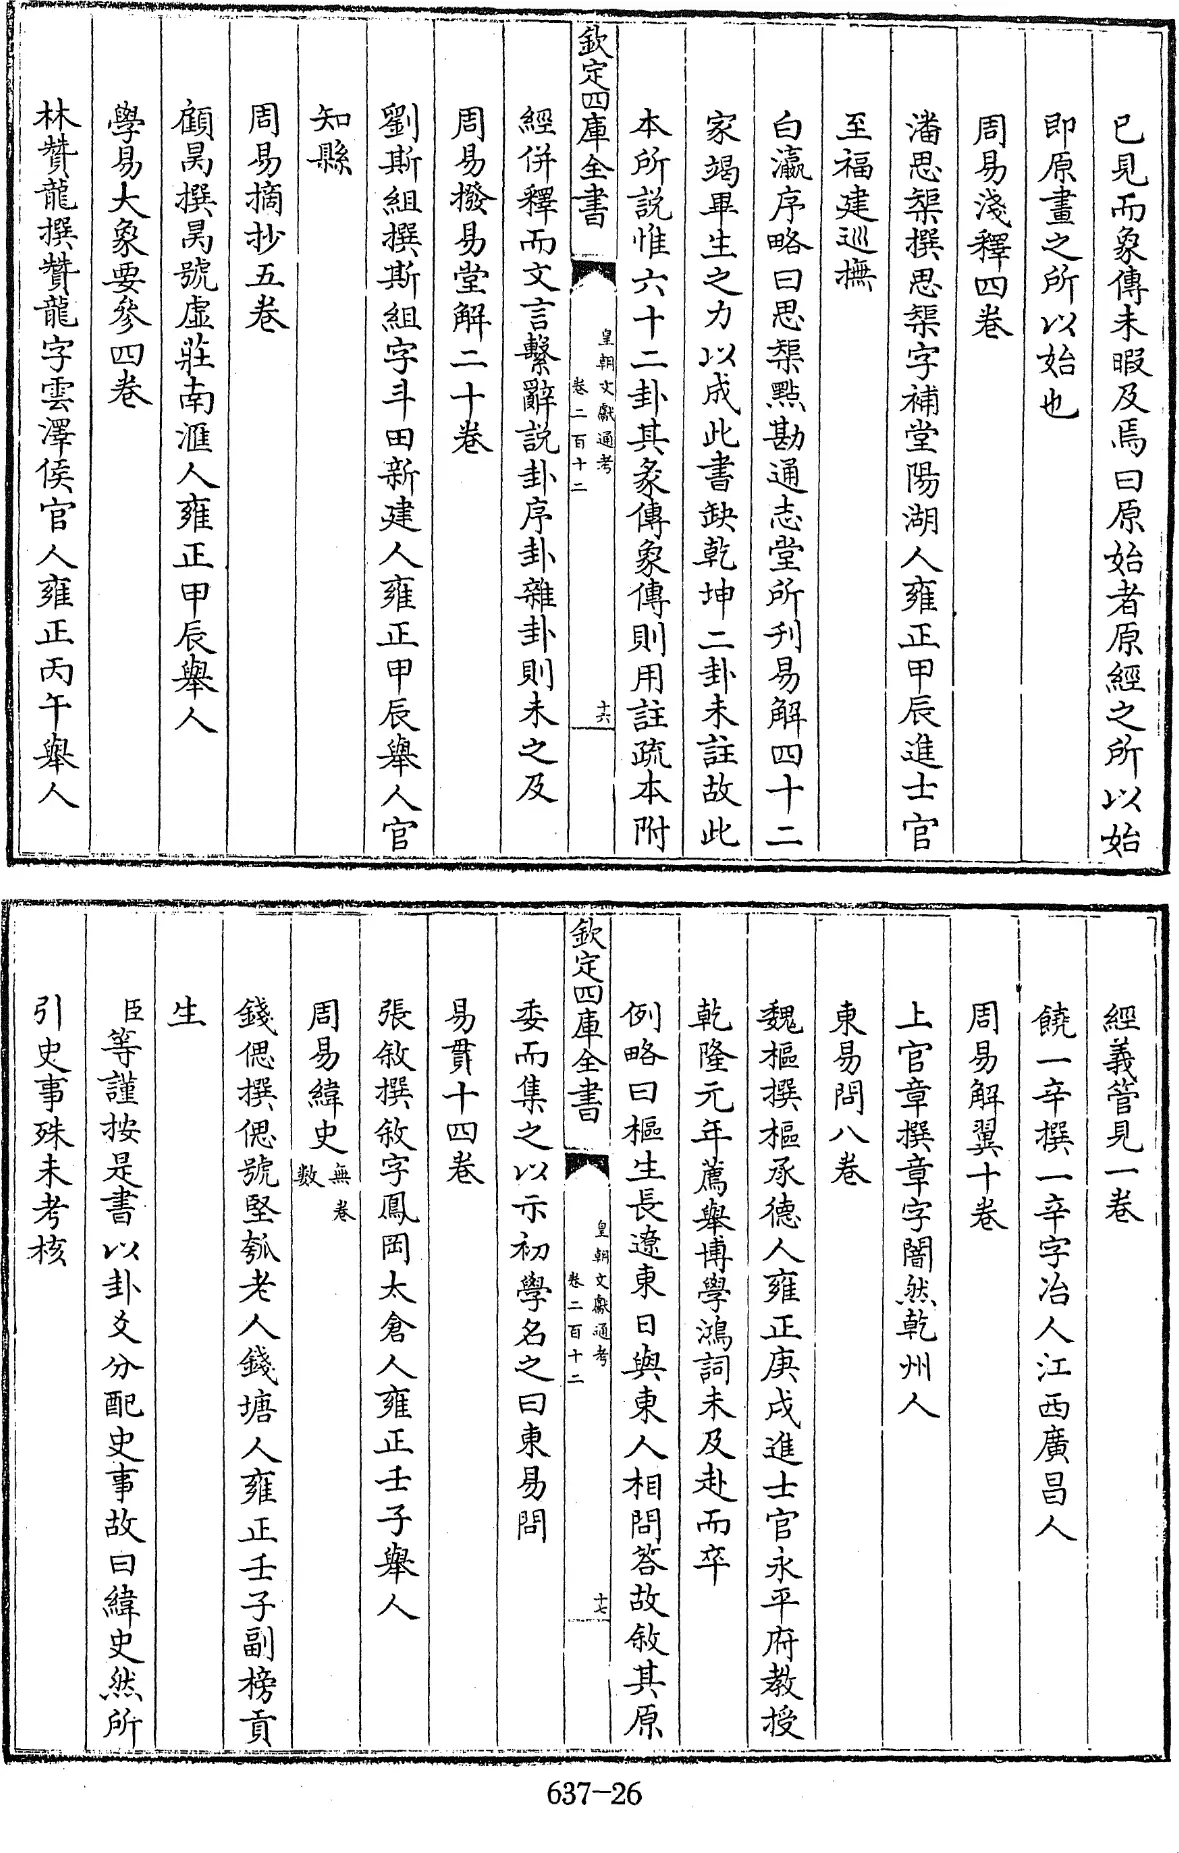 已見而象傳未暇及焉曰原始者原經之所以始
即原畫之所以始也
周易淺釋四卷
潘思榘撰思榘字補堂陽湖人雍正甲辰進士官
至福建巡撫
白瀛序略曰思榘點勘通志堂所刊易解四十二
家竭畢生之力以成此書缺乾坤二卦未註故此
本所說惟六十二卦其彖傳象傳則用註疏本附
欽定四庫全書
皇朝文獻通考
卷二百十二
十六
經併釋而文言繫辭說卦序卦雜卦則未之及
周易撥易堂解二十卷
劉斯組撰斯組字斗田新建人雍正甲辰舉人官
知縣
周易摘抄五卷
顧昺撰昺號虛莊南滙人雍正甲辰舉人
學易大象要參四卷
林贊龍撰贊龍字雲澤侯官人雍正丙午舉人
經義管見一卷
饒一辛撰一辛字冶人江西廣昌人
周易解翼十卷
上官章撰章字闇然乾州人
東易問八卷
魏樞撰樞承德人雍正庚戌進士官永平府教授
乾隆元年薦舉博學鴻詞未及赴而卒
例略曰樞生長遼東日與東人相問答故敘其原
欽定四庫全書
皇朝文獻通考
卷二百十二
十七
委而集之以示初學名之曰東易問
易貫十四卷
張敘撰敘字鳳岡太倉人雍正壬子舉人
周易緯史無卷數
錢偲撰偲號堅瓠老人錢塘人雍正壬子副榜貢
生
臣等謹按是書以卦爻分配史事故曰緯史然所
引史事殊未考核
637-26